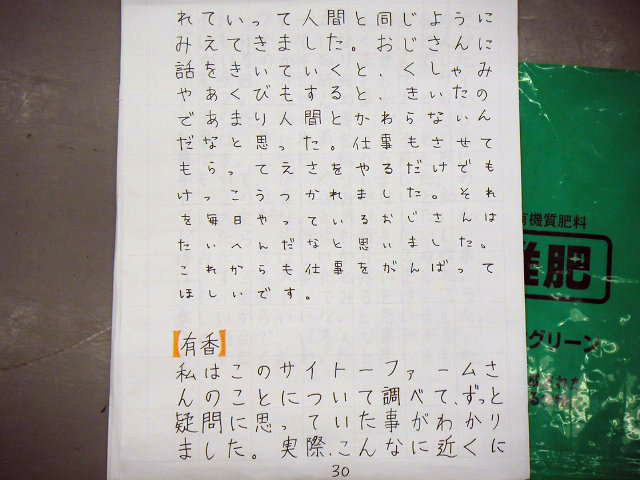 れていって人間と同じように
みえてきました。おじさんに
話をきいていくと、くしゃみ
やあくびもすると、きいたの
であまり人間とかわらないん
だなと思った。仕事もさせて
もらってえさをやるだけでも
けっこうつかれました。それ
を毎日やっているおじさんは
たいへんだなと思いました。
これからも仕事をがんばって
ほしいです。
【有香】
私はこのサイトーファームさ
んのことについて調べて、ずっと
疑問に思っていた事がわかり
ました。実際、こんなに近くに
30
有機質肥料
堆肥
グリーン